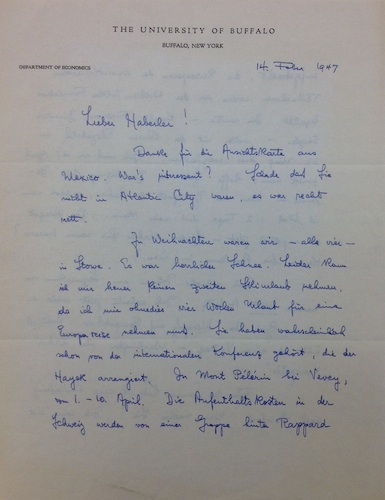 THE UNIVERSITY OF BUFFALO
BUFFALO, NEW YORK
DEPARTMENT OF ECONOMICS
14. Febr 1947
Lieber Haberler!
Danke für die Ansichtskarte aus
Mexico. War's interessant? Schade daß Sie
nicht in Atlantic City waren, es war recht
nett.
Zu Weihnachten waren wir – alle vier –
in Stowe. Es war herrlicher Schnee. Leider kann
ich mir heuer keinen zweiten Skiurlaub nehmen,
da ich mir ohnedies vier Wochen Urlaub für eine
Europareise nehmen muß. Sie haben wahrscheinlich
schon von der internationalen Konferenz gehört, die der
Hayek arrangiert. In Mont Pélérin bei Vevey,
vom 1. – 10. April. Die Aufenthaltskosten in der
Schweiz werden von einer Gruppe hinter Rappard